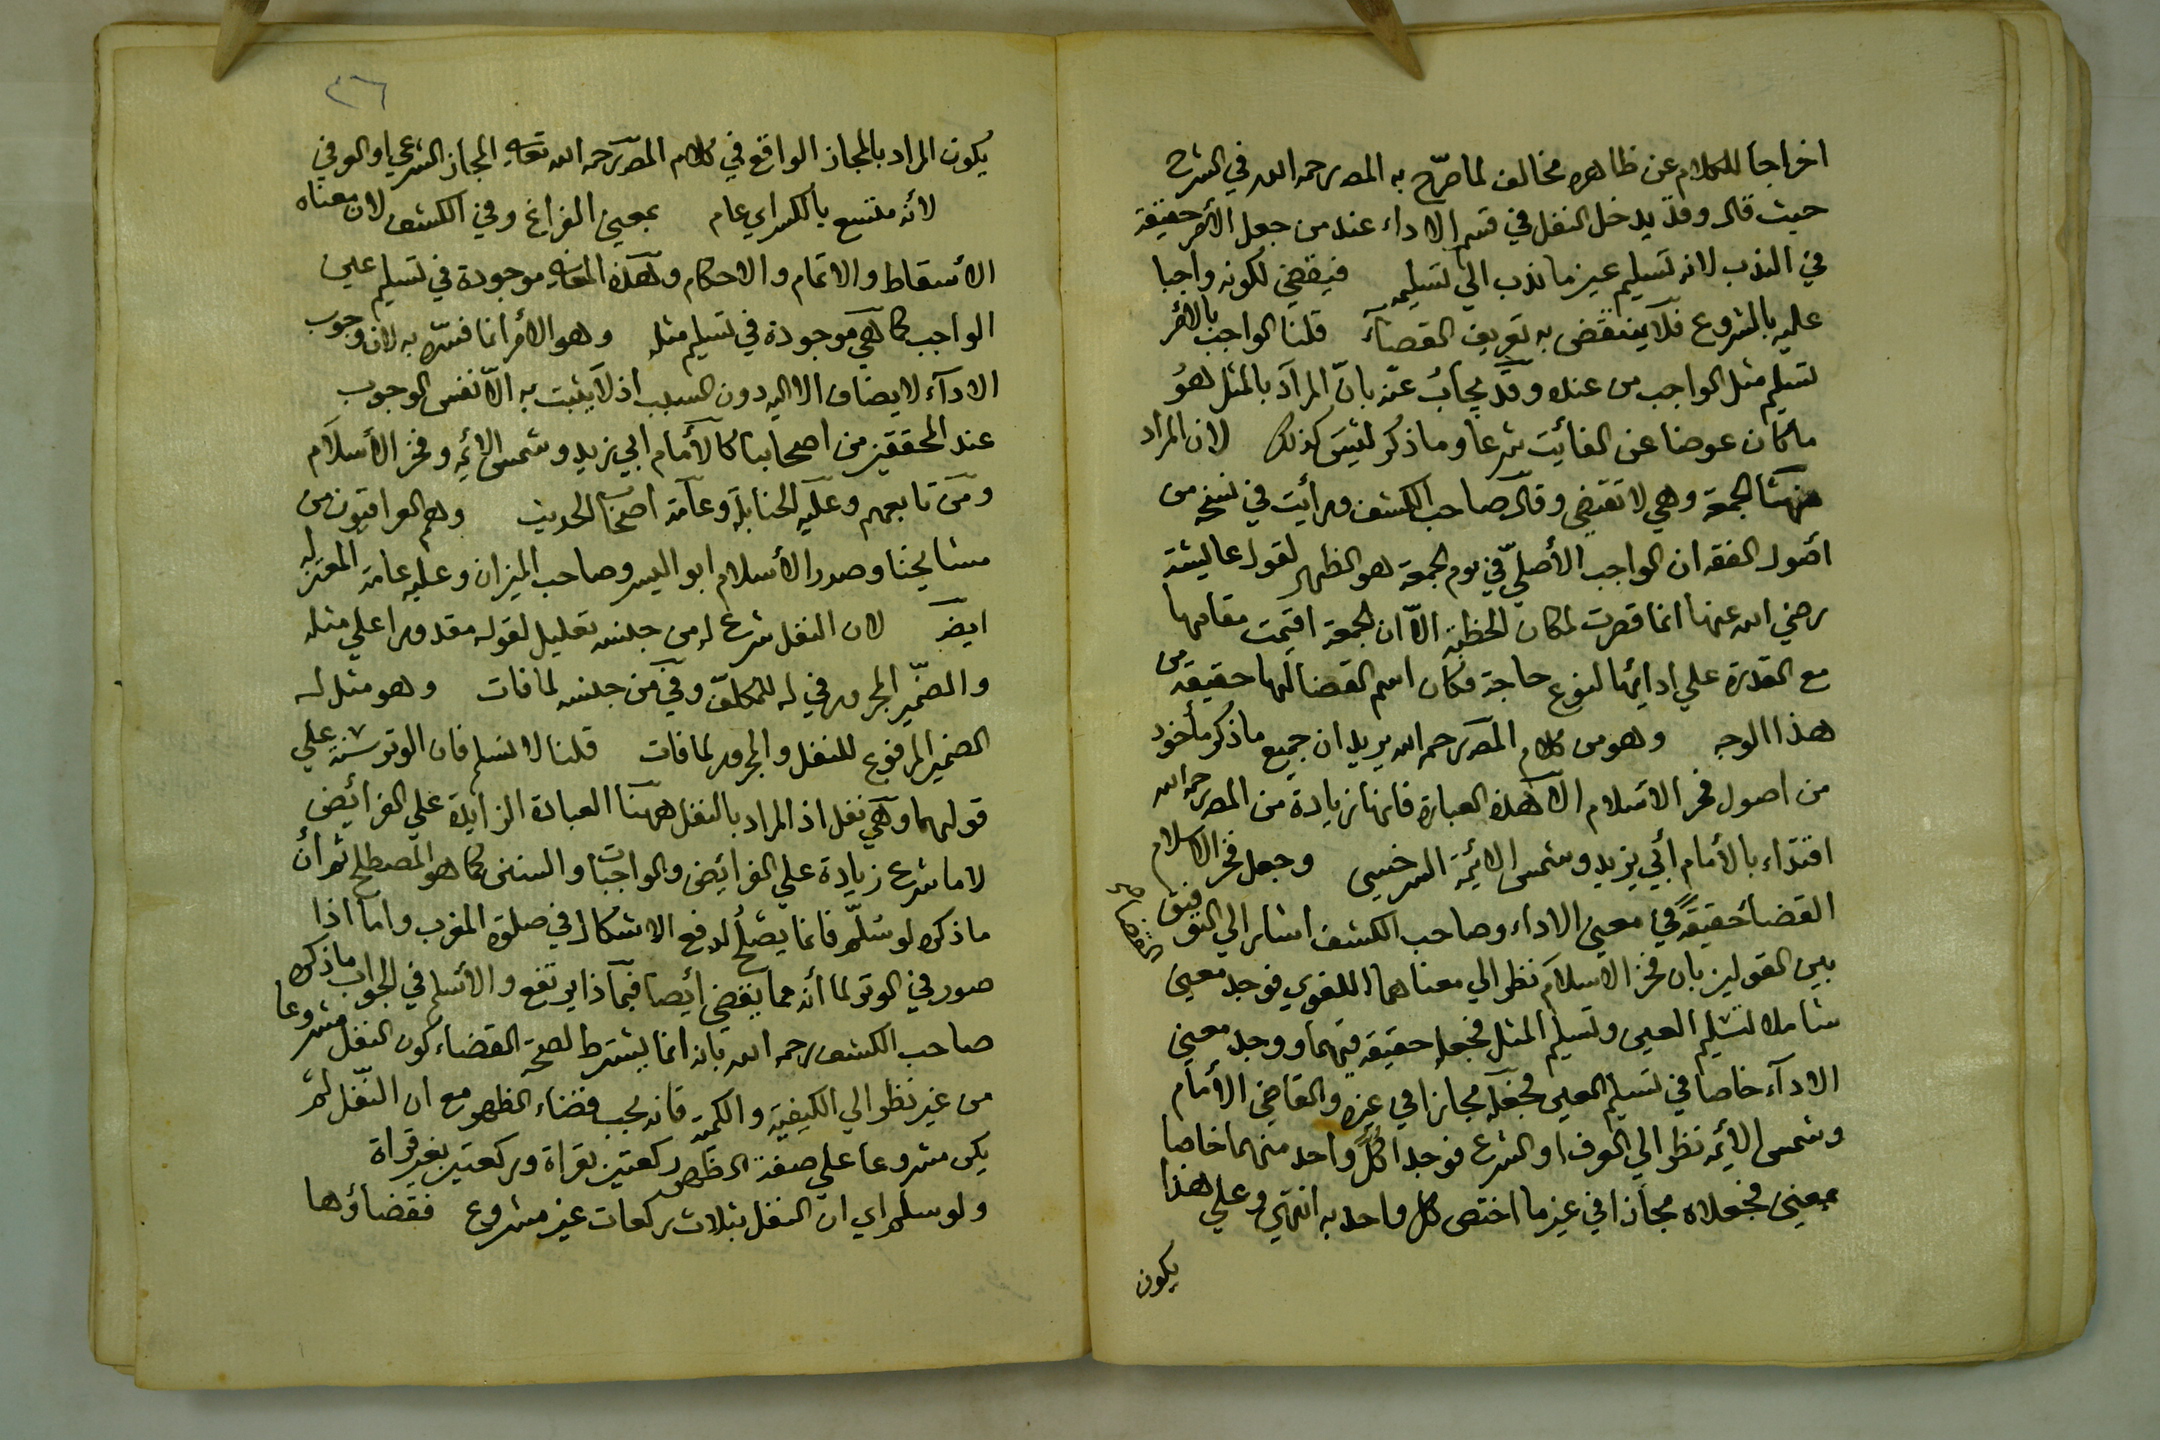 اخراجا للكلام عن ظاهره مخالف لما صرّح به المصـ رحمه الله في الشرح
حيث قال وقد يدخل النفل في قسم الاداء عند من جعل الأمر حقيقة
في الندب لانه تسليم عين ما ندب الي تسليمه فيقضي لكونه واجبا
عليه بالشروع فلا ينتقض به تعريف القضاء قلنا الواجب بالأمر
تسليم مثل الواجب من عنده وقد يجاب عنه بانّ المراد بالمثل هو
ما كان عوضا عن الفائيت شرعا وما ذكر ليس كذلك لان المراد
ههنا الجمعة وهي لا تقتضي وقال صاحب الكشف ورأيت في نسخه من
اصول الفقه ان الواجب الأصليّ في يوم الجمعة هو الظهر لقول عايشة
رضي الله عنها انما قصرت لمكان الخطبة الاّ ان الجمعة اقيمت مقامها
مع القدرة علي ادائها لنوع حاجة فكان اسم القضا لها حقيقة من
هذا الوجه وهو من كلام المصـ رحمه الله يريد ان جميع ما ذكر مأخوذ
من اصول فخر الاسلام الا هذه العبارة فانها زيادة من المصـ رحمه الله
اقتداء بالأمام أبي يزيد وشمس الائيمة السرخسي وجعل فخر الاسلام
القضا حقيقةً في معني الاداء وصاحب الكشف اشار الي التوفيق
بين القولين بان فخر الاسلام نظر الي معناهما اللغوي فوجد معني القضاء
شاملا لتسليم العين وتسليم المثل فجعله حقيقة فيهما ووجد معني
الادآء خاصا في تسليم العين فجعله مجازا في غيره والقاضي الأمام
وشمس الأيمه نظر الي العرف او الشرع فوجدا كلّ واحد منهما خاصا
بمعني فجعلاه مجازا في غير ما اختص كل واحد به انتهي وعلي هذا
يكون
٣٦
يكون المراد بالمجاز الواقع في كلام المصـ رحمه الله تعالي المجاز الشرعي او العرفي
لأنه متسع بالكسر اي عام بمعني الفراغ وفي الكشف لان معناه
الأسقاط والاتمام والاحكام وهذه المعاني موجودة في تسليم عين
الواجب كما هي موجودة في تسليم مثله وهو الأمر انما فسّره به لان وجوب
الادآء لا يضاف الا اليه دون السبب اذ لا يثبت به الاّ نفس الوجوب
عند المحققين من اصحابنا كالأمام ابي يزيد وشمس الأيمه وفخر الأسلام
ومن تابعهم وعليه الحنابلة وعامة اصحاب الحديث وهم العراقيون من
مشايخنا وصدر الأسلام ابو اليسر وصاحب الميزان وعليه عامة المعتزله
ايضـ لان النفل شرع له من جنسه تعليل لقوله مقدورا علي مثله
والضمير المجرور في له للمكلّف وفي من جنسه لما فات وهو مثل له
الضمير المرفوع للنفل والمجرور لما فات قلنا لا نسلم فان الوتر سنة علي
قولهما وهي نفل اذ المراد بالنفل ههنا العبادة الزايدة علي الفرائيض
لا ما شرع زيادة علي الفرائيض والواجبات والسنن كما هو المصطلح ثم أن
ما ذكره لو سُلّم فانما يصلح لدفع الاشكال في صلوة المغرب واما اذا
صور في الوتر لما أنه مما يقضي أيضا فبماذا يرتفع والأسلم في الجواب ما ذكره
صاحب الكشف رحمه الله بانه انما يشترط لصحة القضاء كون النفل مشروعا
من غير نظر الي الكيفية والكمية فانه يجب قضاء الظهر مع ان النّفل لم
يكن مشروعا علي صفة الظهر ركعتين بقراة وركعتين بغير قراة
ولو سلم اي ان النفل بثلاث ركعات غير مشروع فقضاؤها